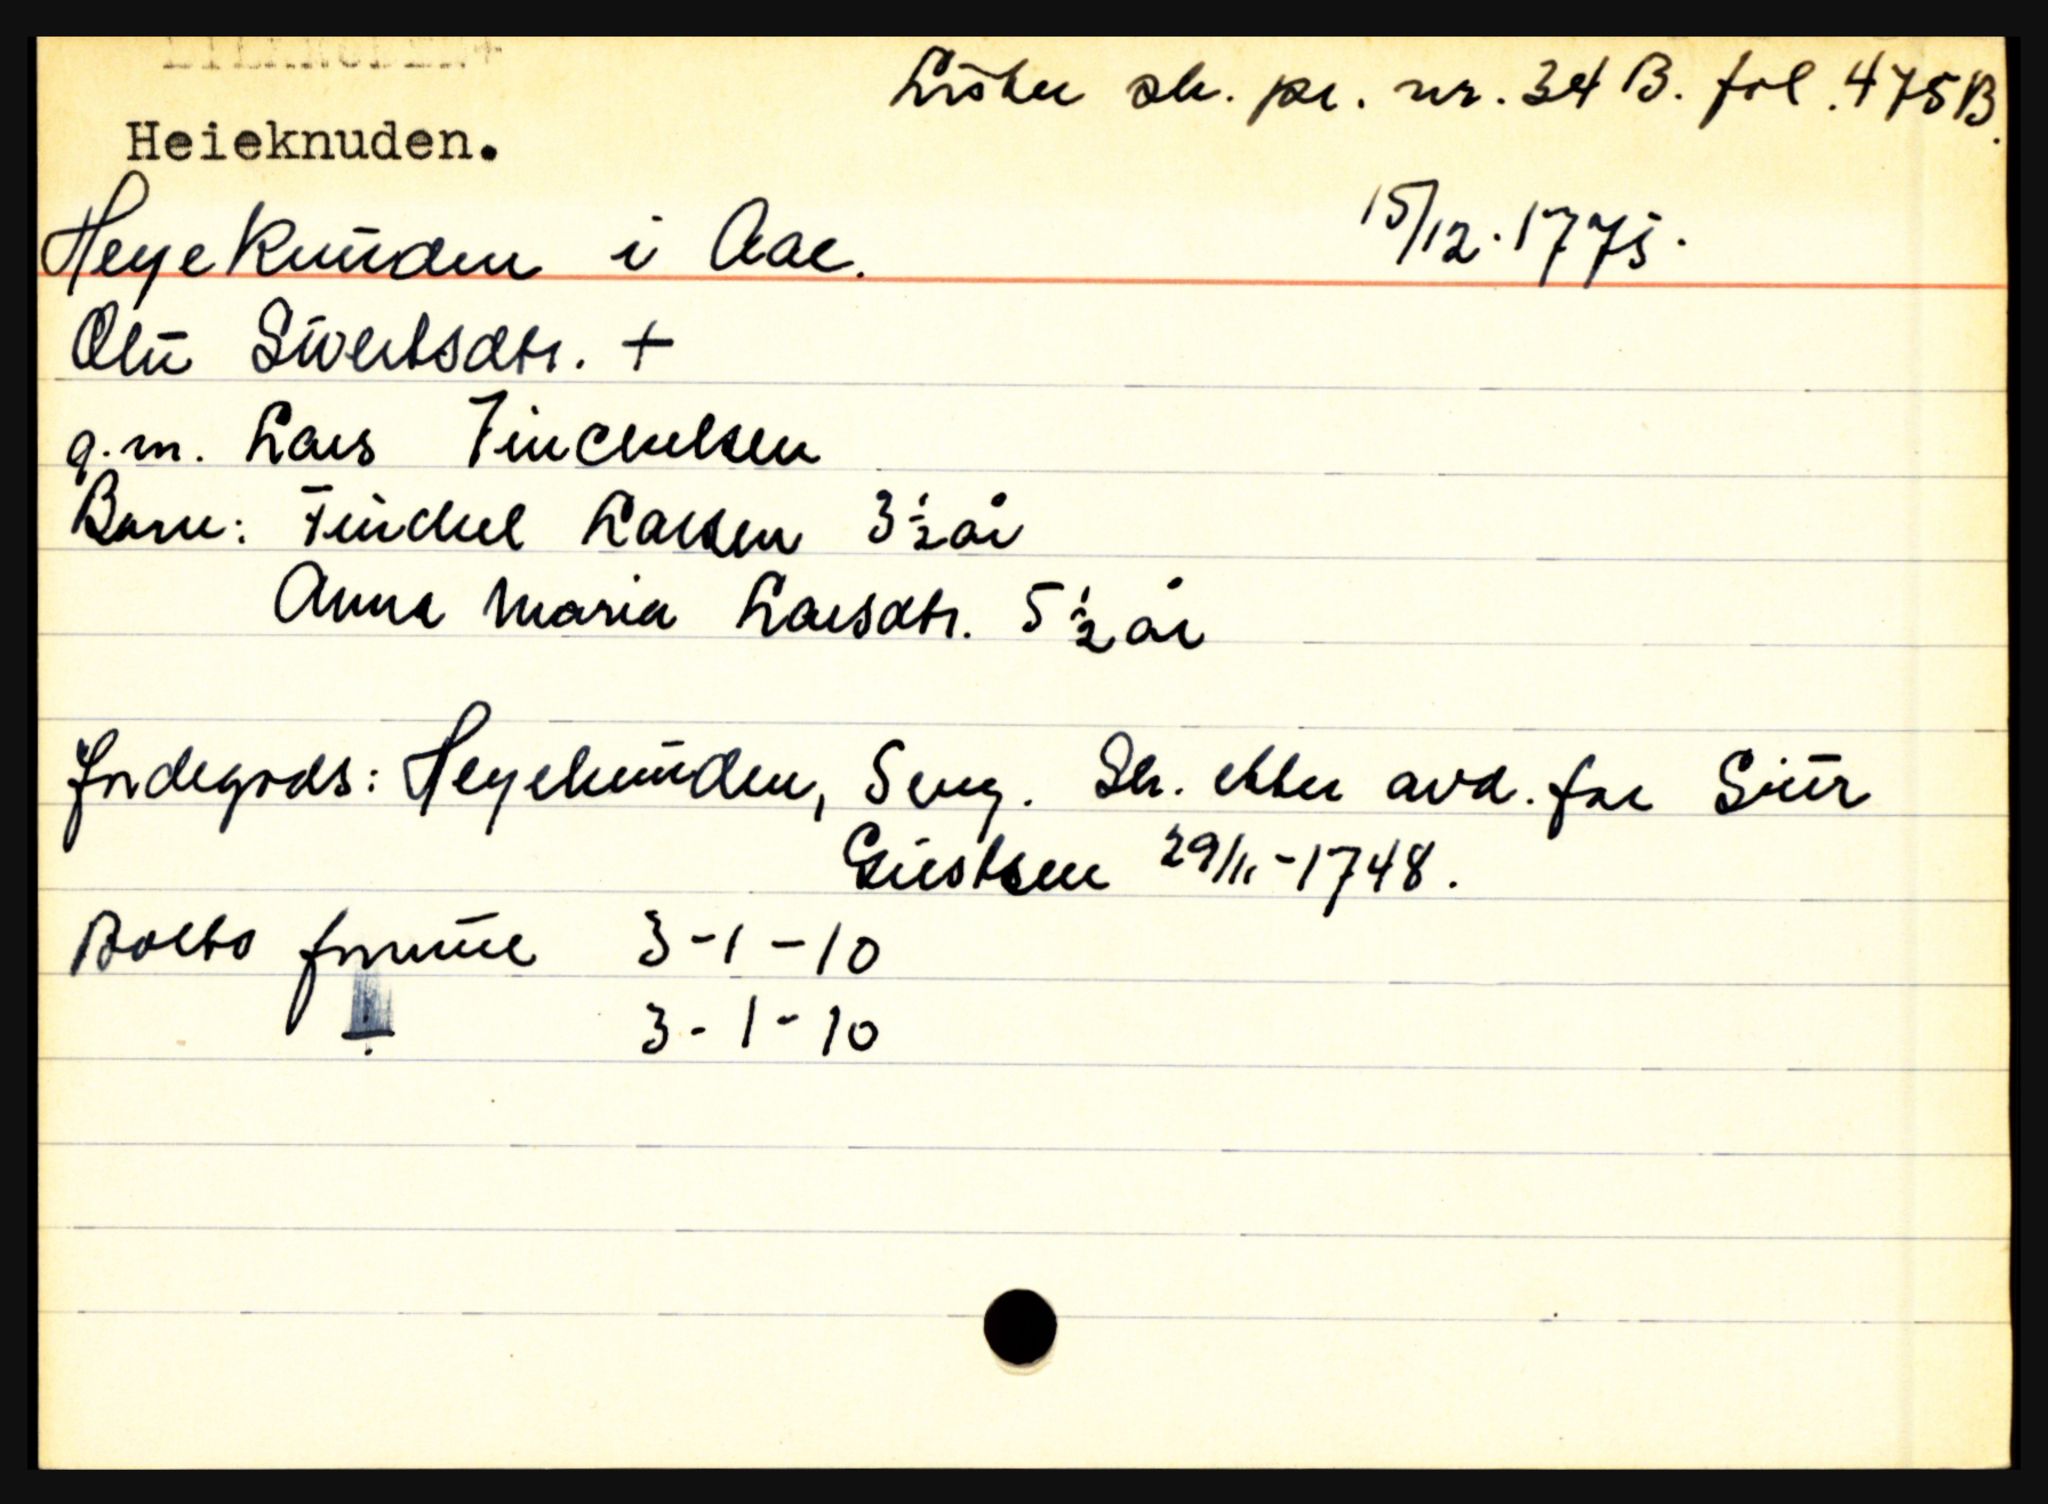 Lister sk. pr. nr. 34 B. fol. 475B.
Heieknuden.
Heyeknuden i Aae. 15/12-1775.
Olu Sivertsdtr. +
g.m. Lars Tinchelsen
Barn: Tinchel Larsen 3 1/2 år
Anna Maria Larsdtr. 5 1/2 år
Jordegods: Heyeknuden, Seng. Sk. etter avd. far Siur
Giertsen 29/11-1748.
Bolto formue 3-1-10
÷ 3-1-10